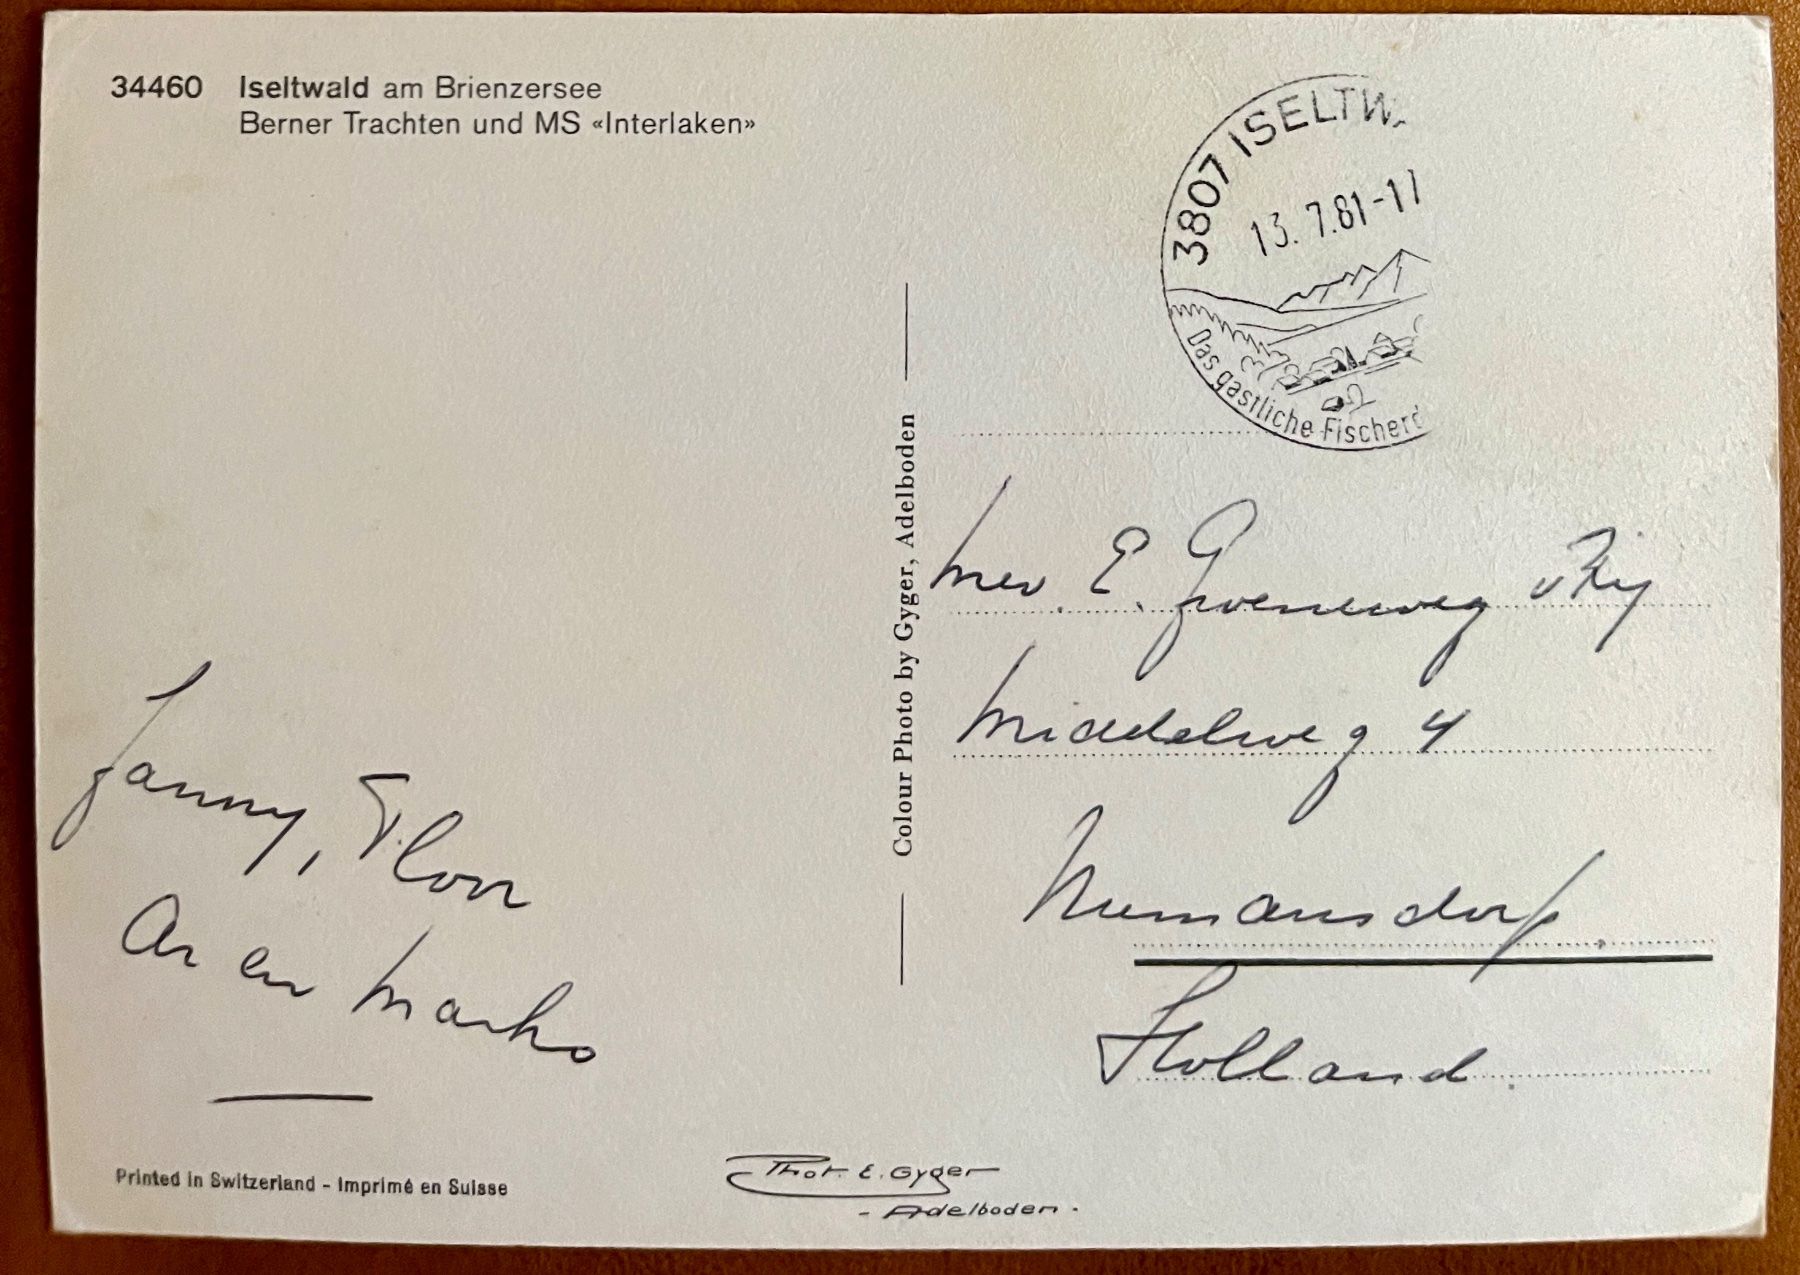 34460 Iseltwald am Brienzersee
Berner Trachten und MS «Interlaken»
3807 ISELTW
13. 7.81-17
Das gastliche Fischerd
Colour Photo by Gyger, Adelboden
Mev. E. Groeneweg v Rij
Middelweg 4
Numansdorp.
Holland.
Janny, Floor
Ar en Marko
Printed in Switzerland - Imprimé en Suisse
Phot. E. Gyger
- Adelboden -